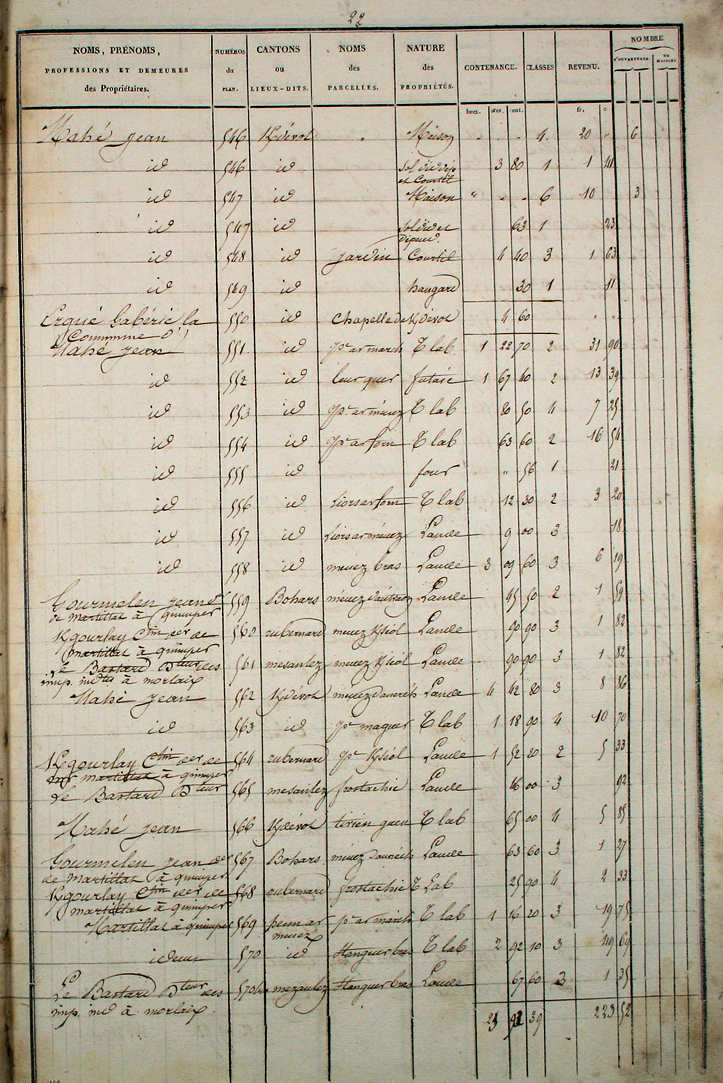 22
NOMS, PRÉNOMS, PROFESSIONS ET DEMEURES des Propriétaires. NUMÉROS du PLAN. CANTONS ou LIEUX-DITS. NOMS des PARCELLES. NATURE des PROPRIÉTÉS. CONTENANCE. CLASSES. REVENU. NOMBRE D'OUVERTURES DE MAISONS
hect. ares. cent. fr. c.
Mahé jean 546 Kdévot " Maison 4. 20 " 6
id 546 id Sol id dép et Courtil 3 80 1 1 41
id 547 id Maison " " " 6 10 3
id 547 id Sol id et dépend. 63 1 23
id 548 id jardin Courtil 4 40 3 1 63
id 549 id hangard 30 1 11
Ergué Gabéric la (Commune d') 550 id Chapelle de Kdevot 4 60 " "
Mahé jean 551 id pc ar march T lab. 1 22 70 2 31 90
id 552 id leur guer futaie 1 67 40 2 13 39
id 553 id pc ar menez T lab 80 50 4 7 25
id 554 id pc ar forn T lab 63 60 2 16 54
id 555 id four " 56 1 21
id 556 id liors ar forn T lab 12 30 2 3 20
id 557 id liors ar menez Lande 9 00 3 18
id 558 id menez bras Lande 3 09 60 3 6 19
Gourmelen jean 559 Bohars menez Lande 45 50 2 1 59
de martillat à quimper
Kgourlay 560 zubernard menez Kliol Lande 90 90 3 1 82
martillat à quimper
le Bastard 561 mesanlez menez Kliol Lande 90 90 3 1 82
à morlaix
Mahé jean 562 Kdévot menez Lande 4 42 80 3 8 86
id 563 id pc maguer T lab 1 18 90 4 10 70
Kgourlay 564 zubernard pc Kliol Lande 1 52 20 2 5 33
martillat à quimper
Le Bastard 565 mesanlez frostachie Lande 46 00 3 92
Mahé jean 566 Kdévot tirien guen T lab 65 00 4 5 85
Gourmelen jean 567 Bohars menez Lande 63 60 3 1 27
de martillat à quimper
Kgourlay 568 zubernard frostachie T Lab 25 90 4 2 33
martillat à quimper
Martillat à quimper 569 penn ar menez pc ar march T lab 1 16 20 3 19 75
idem 570 id Stanguer bras T lab 2 92 10 3 49 69
Le Bastard 570 mezanlez Stanguer bras Lande 67 60 3 1 35
à morlaix
23 92 39 223 52